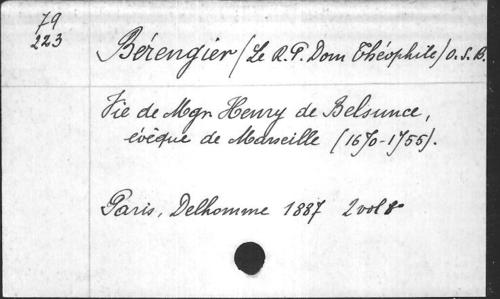 79
223
Bérengier (Le R. P. Dom Théophile) O. S. B.
Vie de Mgr Henry de Belsunce,
évêque de Marseille (1670-1755).
Paris, Delhomme 1887 2 vol 8